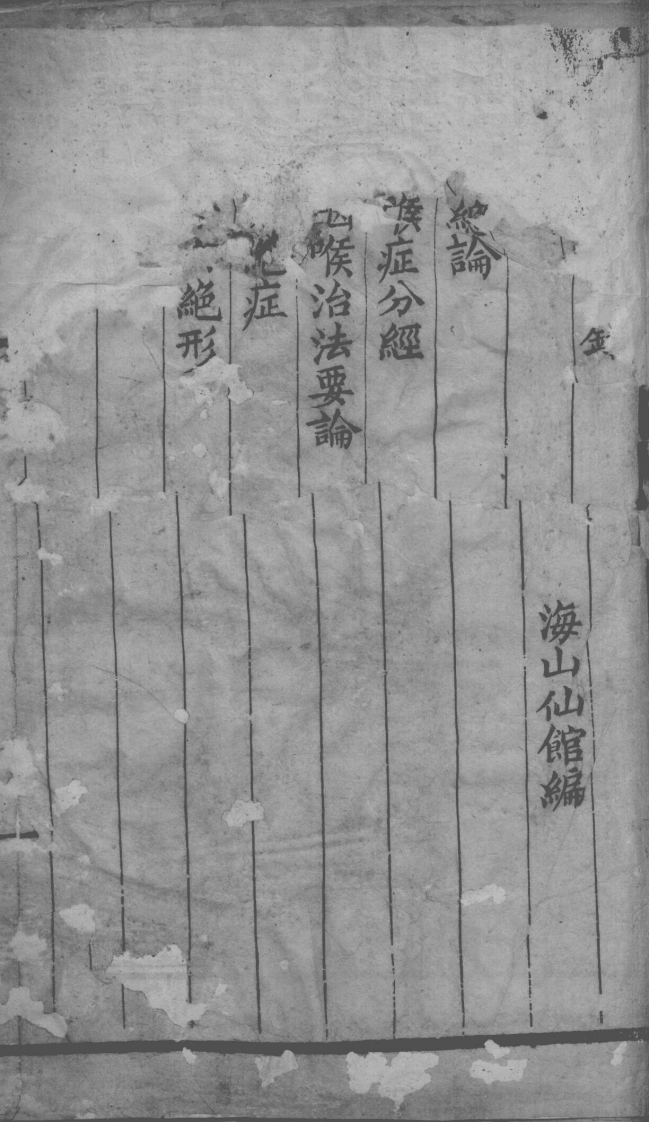 海山仙館編
總論
喉症分經
喉治法要論
症
絕形